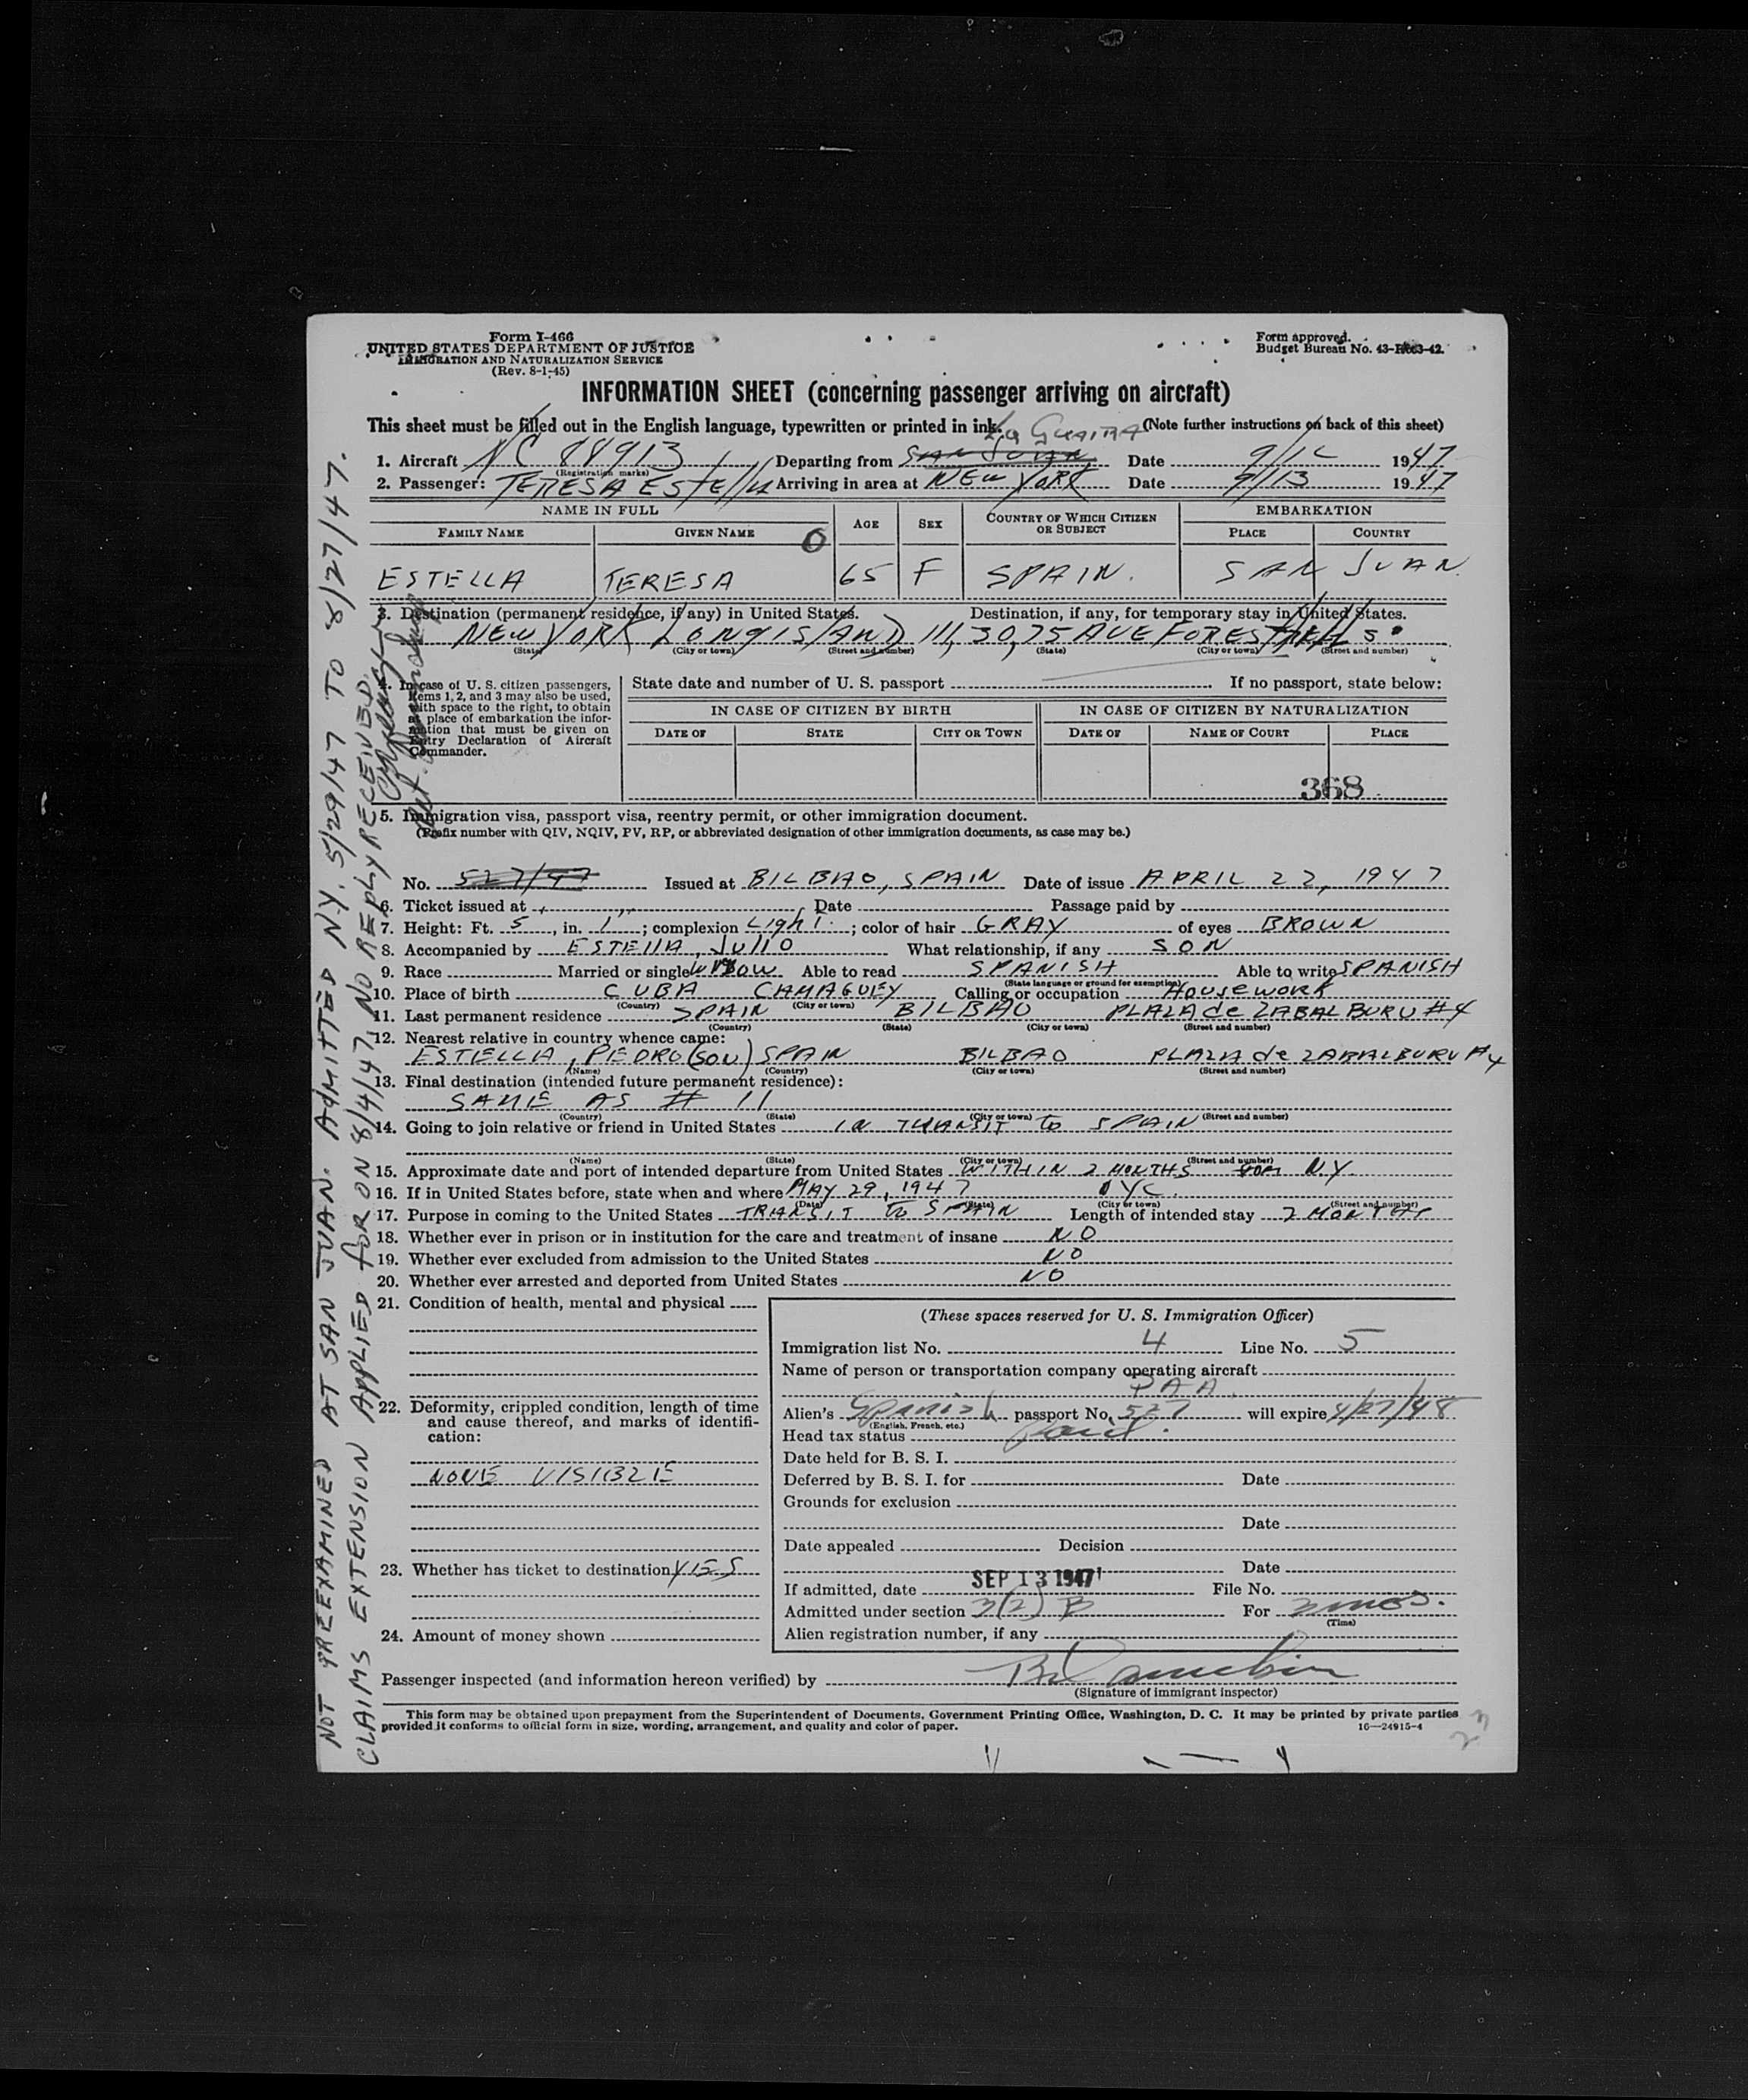 Form I-466
UNITED STATES DEPARTMENT OF JUSTICE
IMMIGRATION AND NATURALIZATION SERVICE
(Rev. 8-1-45)
Form approved.
Budget Bureau No. 43-R063-42.
INFORMATION SHEET (concerning passenger arriving on aircraft)
This sheet must be filled out in the English language, typewritten or printed in ink. (Note further instructions on back of this sheet)
La Guaira
1. Aircraft NC 88913 Departing from SAN JUAN Date 9/12 1947
(Registration marks)
2. Passenger: TERESA ESTELLA Arriving in area at NEW YORK Date 9/13 1947
NAME IN FULL AGE SEX COUNTRY OF WHICH CITIZEN OR SUBJECT EMBARKATION
FAMILY NAME GIVEN NAME PLACE COUNTRY
O
ESTELLA TERESA 65 F SPAIN. SAN JUAN
3. Destination (permanent residence, if any) in United States. Destination, if any, for temporary stay in United States.
NEW YORK LONG ISLAND 111, 30, 75 AVE FOREST HILLS
(State) (City or town) (Street and number) (State) (City or town) (Street and number)
4. In case of U. S. citizen passengers, items 1, 2, and 3 may also be used, with space to the right, to obtain at place of embarkation the information that must be given on Entry Declaration of Aircraft Commander.
State date and number of U. S. passport If no passport, state below:
IN CASE OF CITIZEN BY BIRTH IN CASE OF CITIZEN BY NATURALIZATION
DATE OF STATE CITY OR TOWN DATE OF NAME OF COURT PLACE
368
5. Immigration visa, passport visa, reentry permit, or other immigration document.
(Prefix number with QIV, NQIV, PV, RP, or abbreviated designation of other immigration documents, as case may be.)
No. 527/47 Issued at BILBAO, SPAIN Date of issue APRIL 22, 1947
6. Ticket issued at Date Passage paid by
7. Height: Ft. 5, in. 1; complexion Light; color of hair GRAY of eyes BROWN
8. Accompanied by ESTELLA, JULIO What relationship, if any SON
9. Race Married or single WIDOW Able to read SPANISH Able to write SPANISH
(State language or ground for exemption)
10. Place of birth CUBA CAMAGUEY Calling or occupation HOUSEWORK
(Country) (City or town)
11. Last permanent residence SPAIN BILBAO PLAZA de ZABALBURU #4
(Country) (State) (City or town) (Street and number)
12. Nearest relative in country whence came:
ESTELLA, PEDRO (SON) SPAIN BILBAO PLAZA de ZABALBURU #4
(Name) (Country) (City or town) (Street and number)
13. Final destination (intended future permanent residence):
SAME AS # 11
(Country) (State) (City or town) (Street and number)
14. Going to join relative or friend in United States IN TRANSIT to SPAIN
(Name) (State) (City or town) (Street and number)
15. Approximate date and port of intended departure from United States WITHIN 2 MONTHS NY
16. If in United States before, state when and where MAY 29, 1947 NYC.
(Date) (State) (City or town) (Street and number)
17. Purpose in coming to the United States TRANSIT to SPAIN Length of intended stay 2 MONTHS
18. Whether ever in prison or in institution for the care and treatment of insane NO
19. Whether ever excluded from admission to the United States NO
20. Whether ever arrested and deported from United States NO
21. Condition of health, mental and physical
22. Deformity, crippled condition, length of time and cause thereof, and marks of identification:
NONE VISIBLE
23. Whether has ticket to destination YES
24. Amount of money shown
(These spaces reserved for U. S. Immigration Officer)
Immigration list No. 4 Line No. 5
Name of person or transportation company operating aircraft
PAA.
Alien's Spanish passport No. 527 will expire 4/27/48
(English, French, etc.)
Head tax status Paid.
Date held for B. S. I.
Deferred by B. S. I. for Date
Grounds for exclusion
Date
Date appealed Decision
Date
If admitted, date SEP 13 1947 File No.
Admitted under section 3(2) B For 2 mos.
(Time)
Alien registration number, if any
Passenger inspected (and information hereon verified) by
(Signature of immigrant inspector)
This form may be obtained upon prepayment from the Superintendent of Documents, Government Printing Office, Washington, D. C. It may be printed by private parties
provided it conforms to official form in size, wording, arrangement, and quality and color of paper.
16—24915-4
23
NOT PREEXAMINED AT SAN JUAN. ADMITTED N.Y. 5/29/47 TO 8/27/47.
CLAIMS EXTENSION APPLIED FOR ON 8/4/47, NO REPLY RECEIVED.